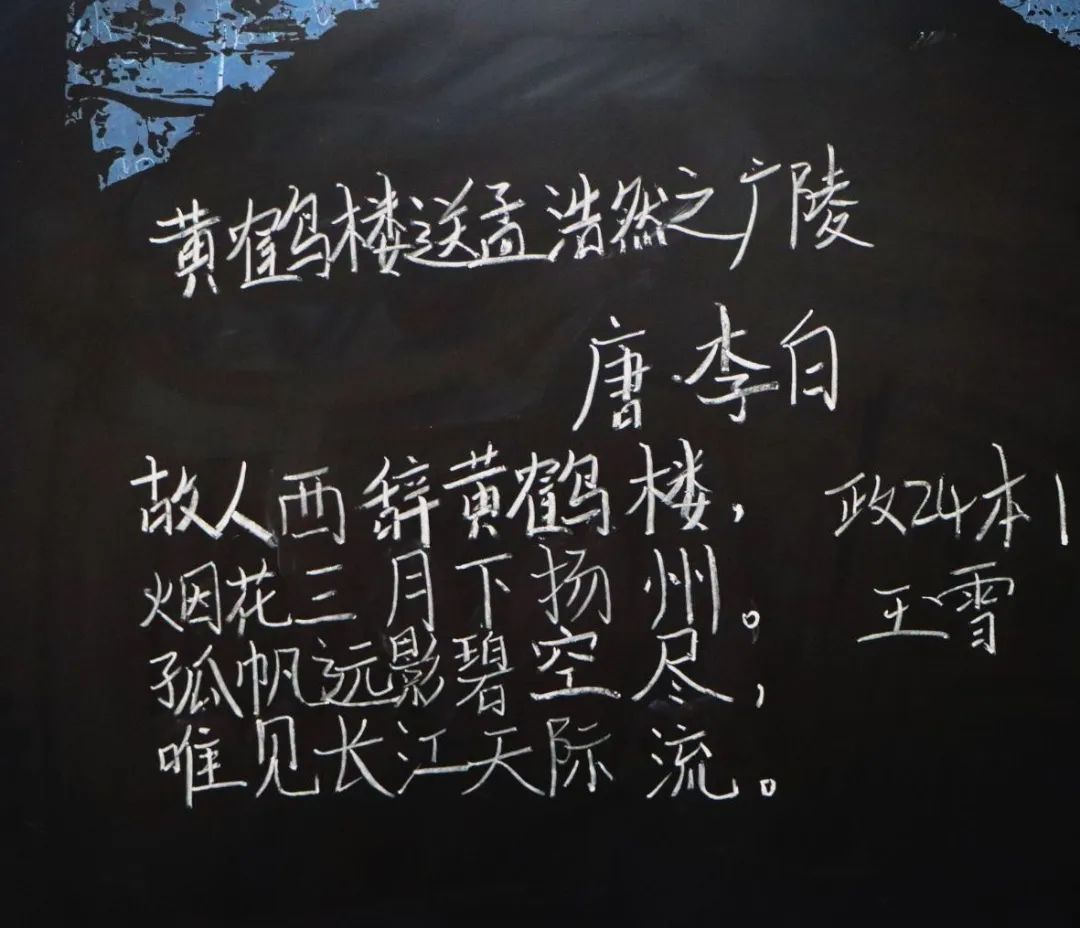 黄鹤楼送孟浩然之广陵
唐·李白
故人西辞黄鹤楼，
烟花三月下扬州。
孤帆远影碧空尽，
唯见长江天际流。
政24本1
王雪